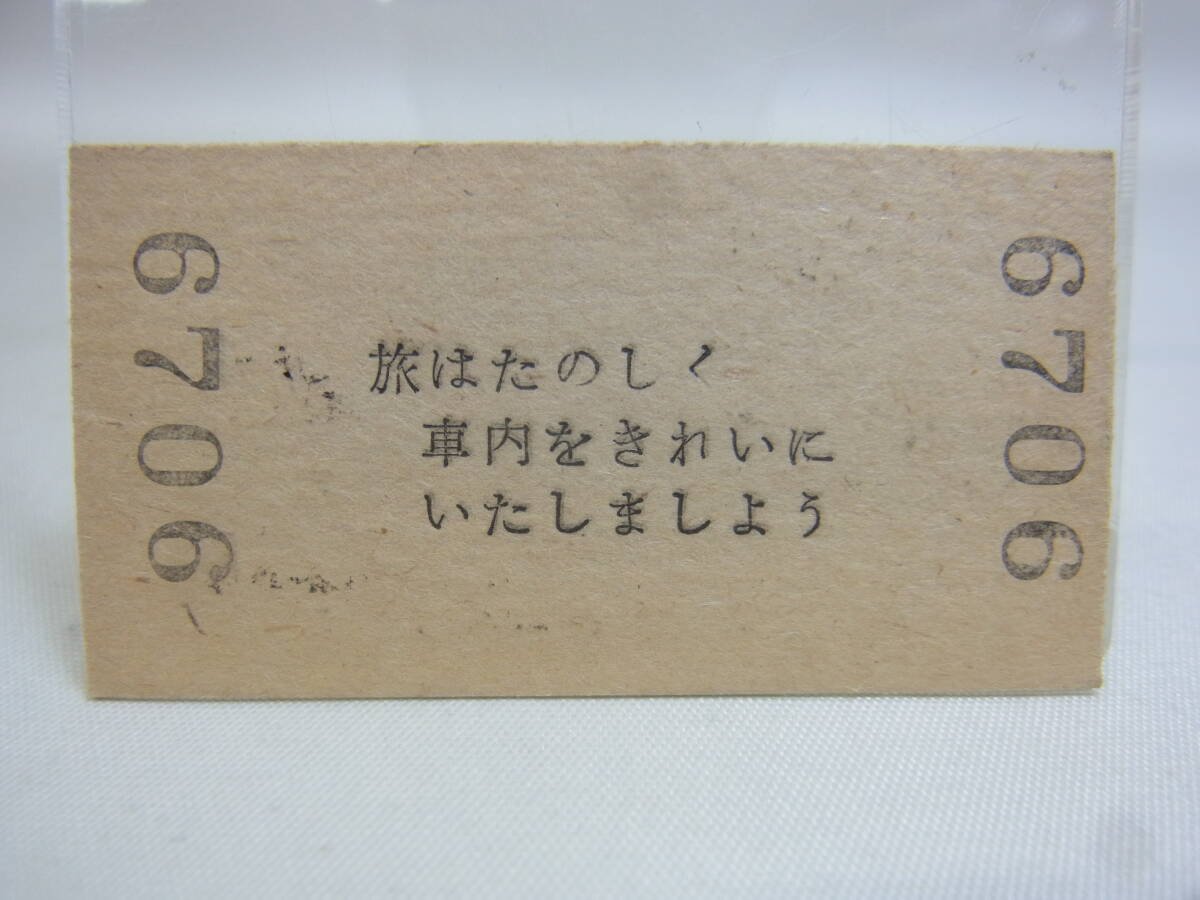 6706
旅はたのしく
車内をきれいに
いたしましよう
6706